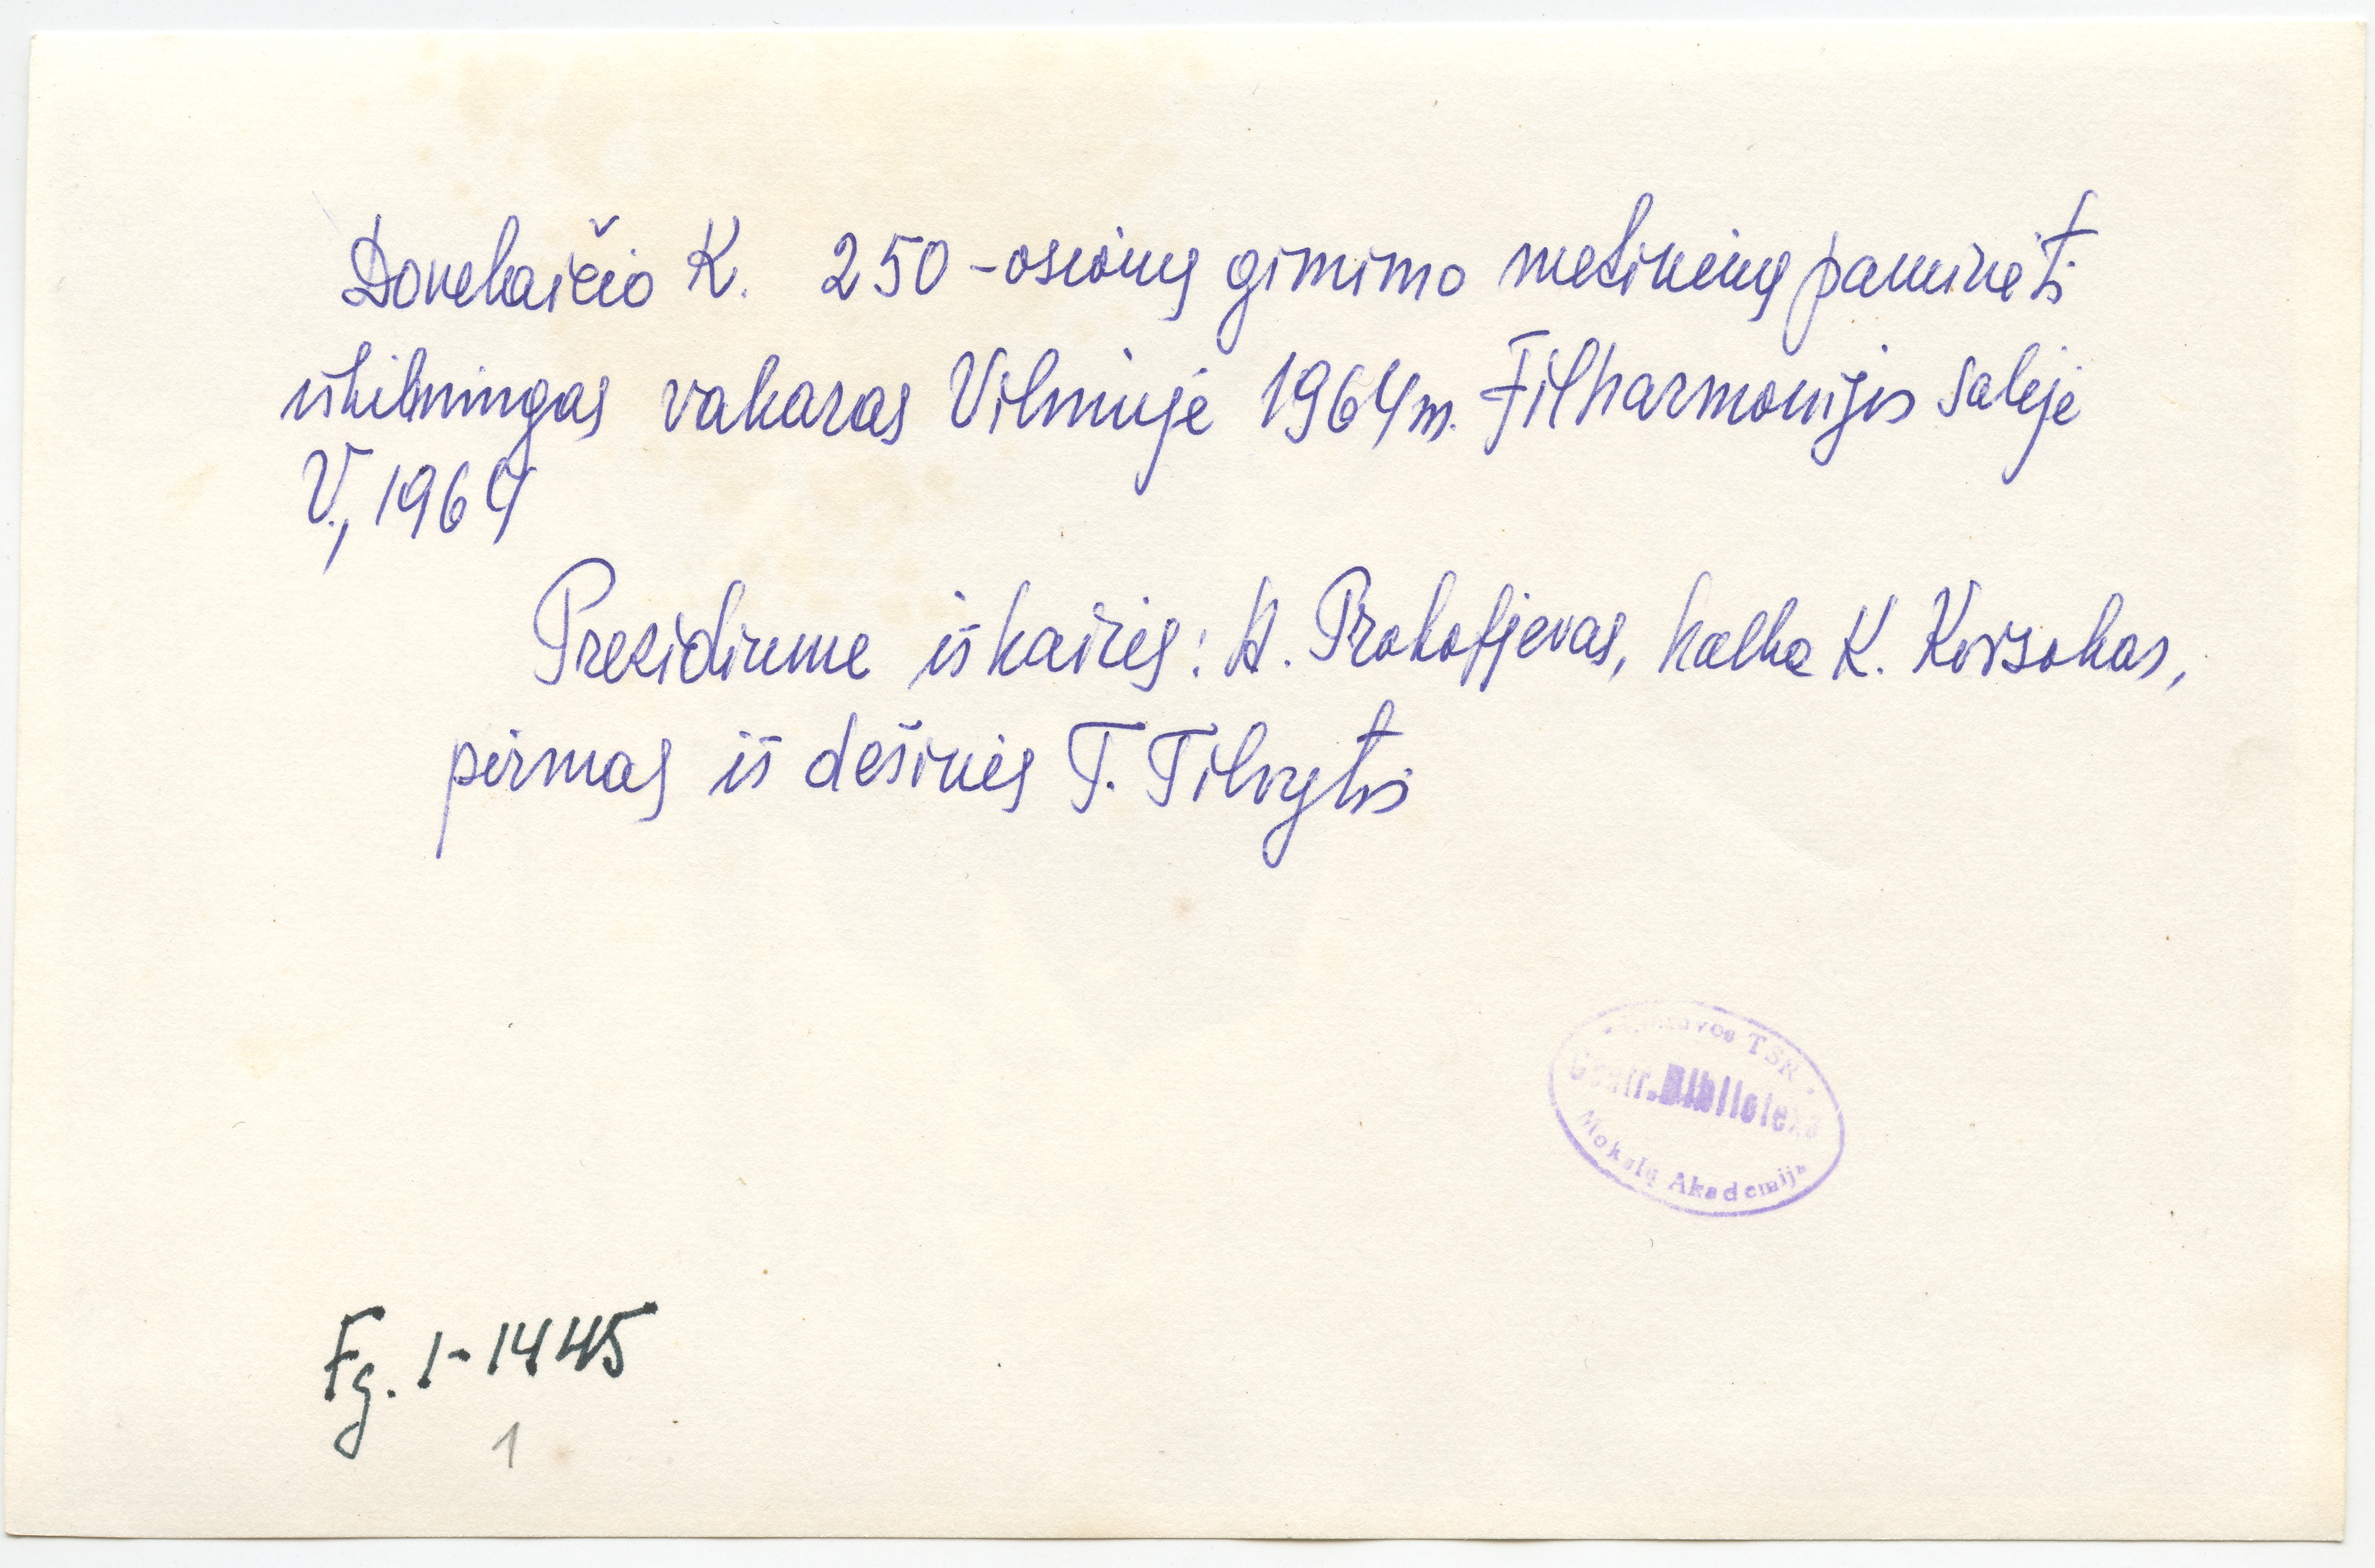 Donelaičio K. 250-osioms gimimo metinėms paminėti
iškilmingas vakaras Vilniuje 1964 m. Filharmonijos salėje
V., 1964
Prezidiume iš kairės: A. Prokofjevas, kalba K. Korsakas,
pirmas iš dešinės T. Tilvytis
Lietuvos TSR
Centr. Biblioteka
Mokslų Akademija
Fg. 1-1445
1